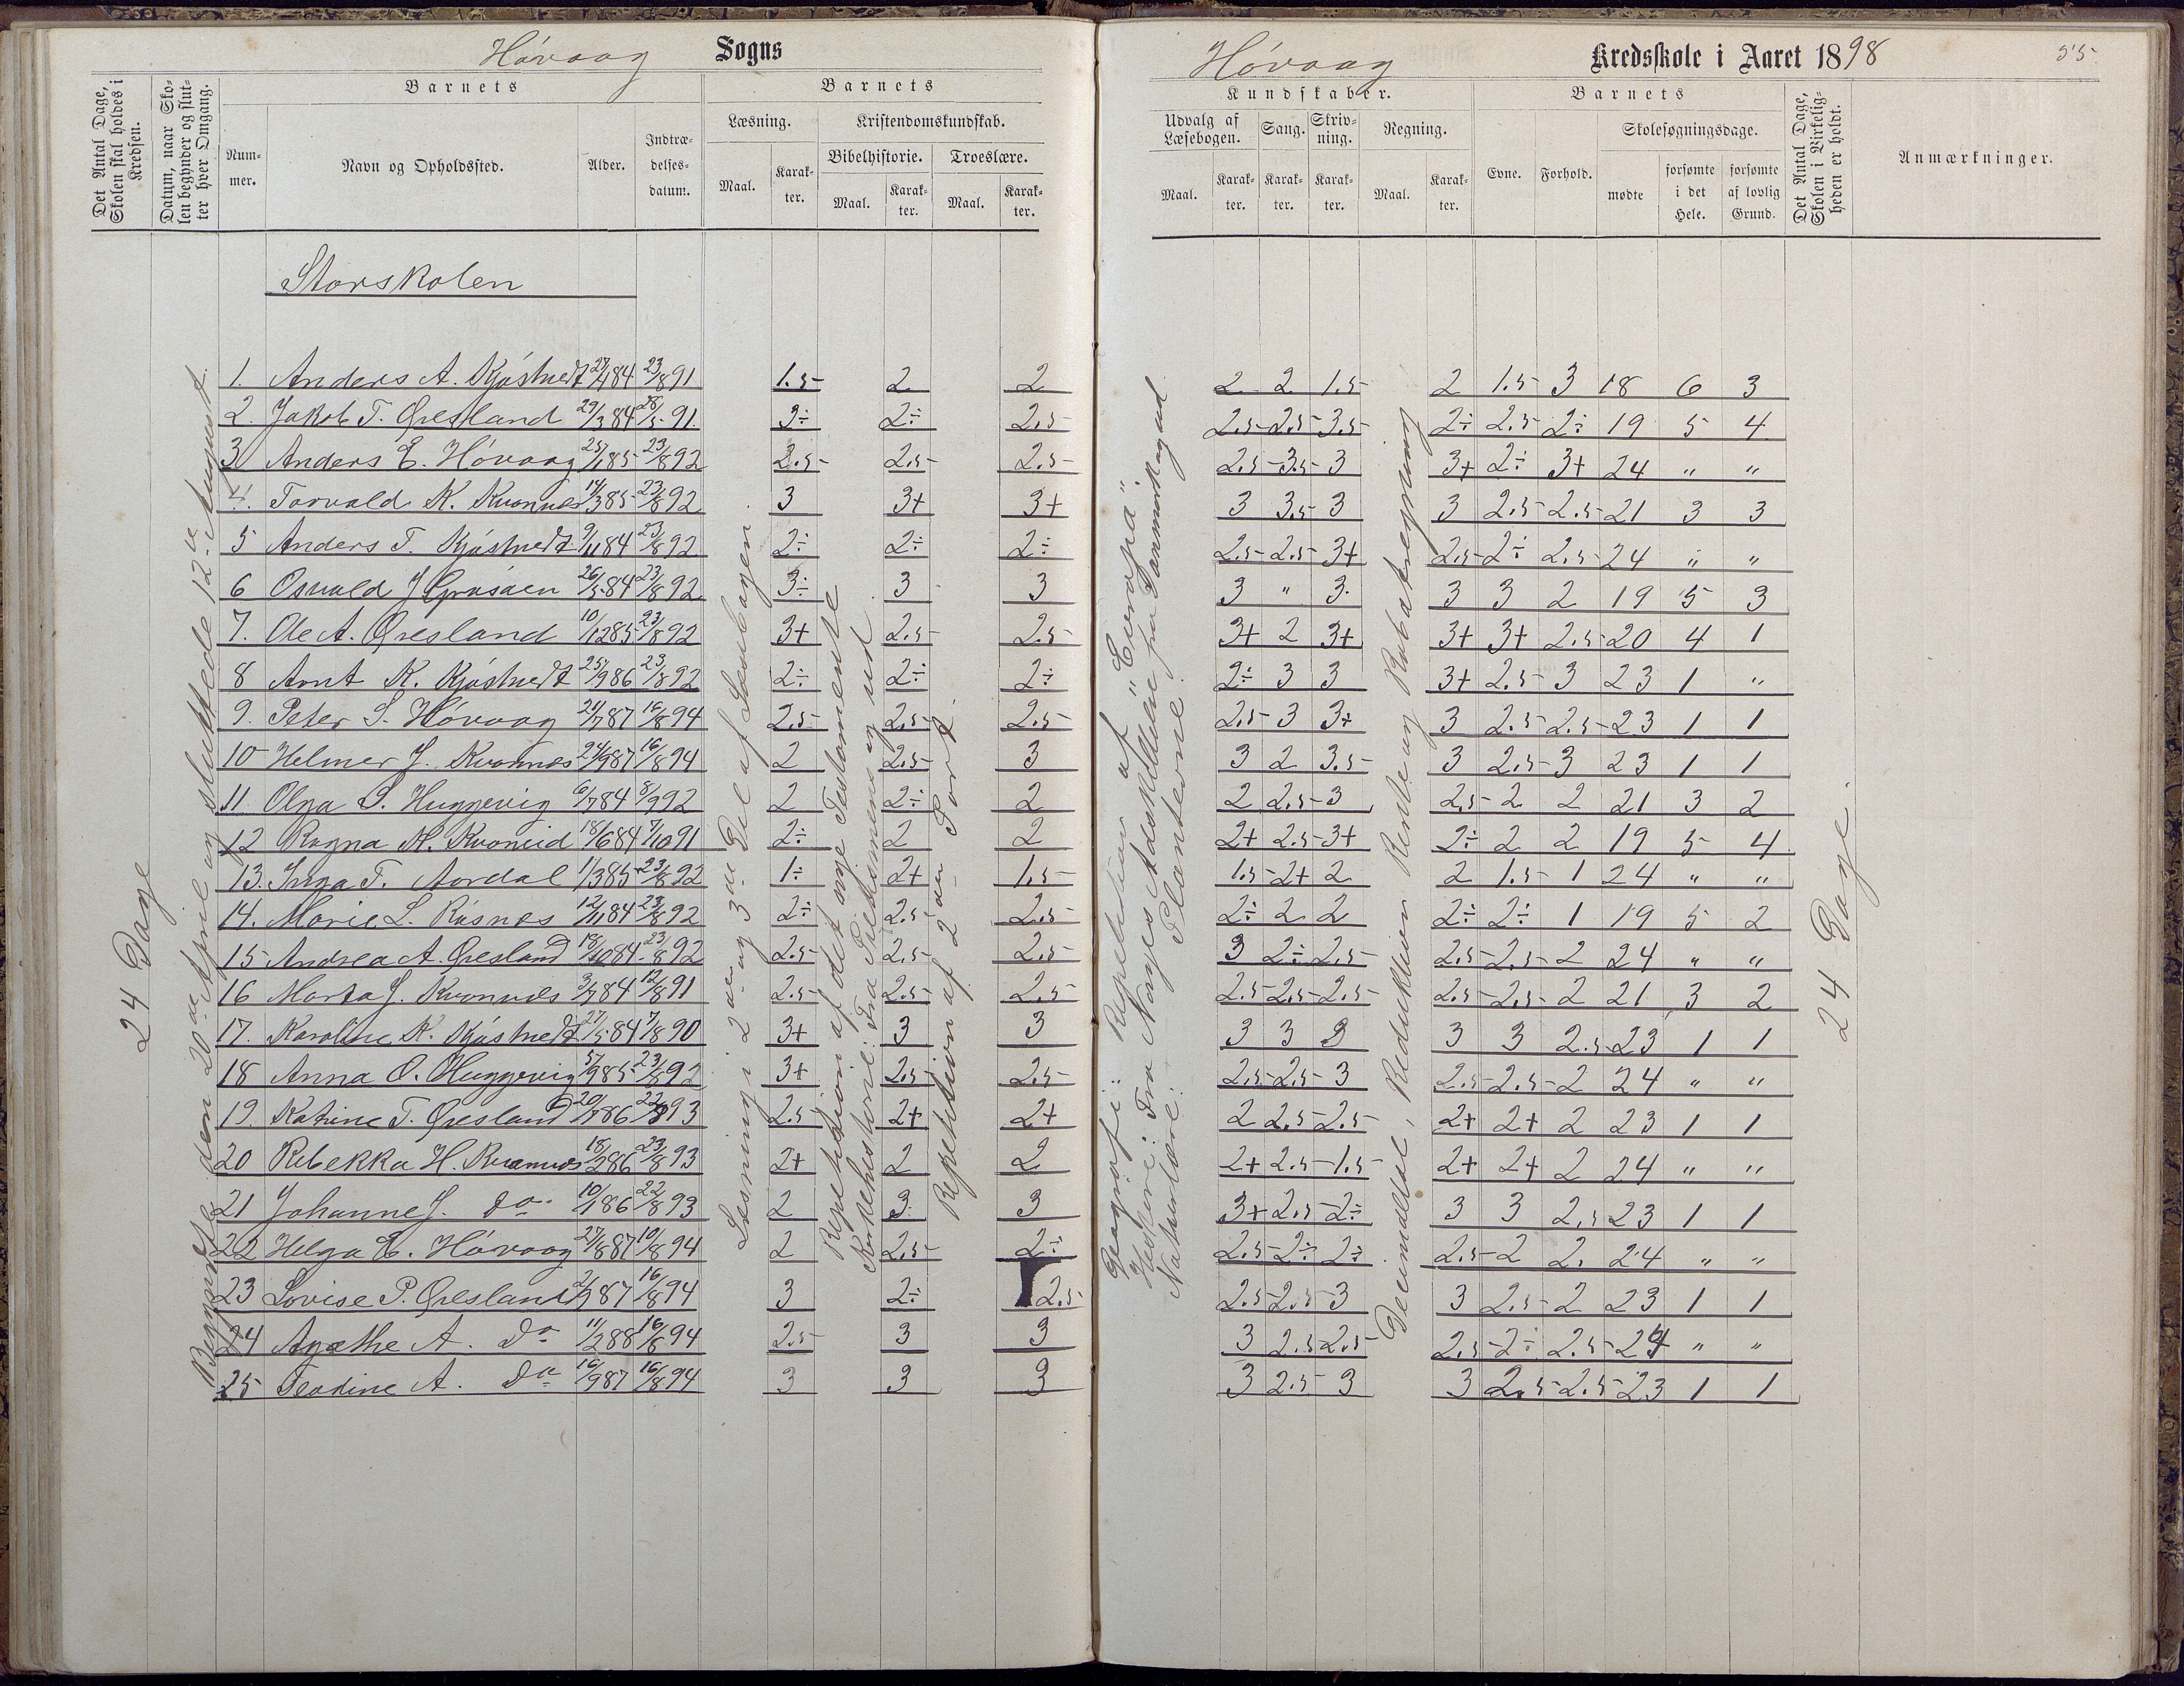 Høvaag Sogns
Høvaag Kredsskole i Aaret 1898
55
Det Antal Dage, Skolen skal holdes i Kredsen.
Datum, naar Skolen begynder og slutter hver Omgang.
Barnets
Nummer.
Navn og Opholdssted.
Alder.
Indtrædelsesdatum.
Barnets
Læsning.
Maal.
Karakter.
Kristendomskundskab.
Bibelhistorie.
Maal.
Karakter.
Troeslære.
Maal.
Karakter.
Kundskaber.
Udvalg af Læsebogen.
Maal.
Karakter.
Sang.
Karakter.
Skrivning.
Karakter.
Regning.
Maal.
Karakter.
Barnets
Evne.
Forhold.
Skolesøgningsdage.
mødte
forsømte i det Hele.
forsømte af lovlig Grund.
Det Antal Dage, Skolen i Virkeligheden er holdt.
Anmærkninger.
Storskolen
24 Dage
Begyndte den 20de April og sluttede 12te August.
Læsning i 2den og 3die Del af Læsebogen.
Repetition af det nye Testamente
Kirkehistorie: Fra
Repetition af 2den Part.
Geografi: Repetition af "Europa".
Historie: Fra Norges Adskillelse fra Danmark og ud
Naturlære: Planterne.
Decimaldelt, Reduktion Rente og Rabatregning
24 Dage.
1. Anders A. Kjøstvedt 27/4 84 23/8 91 1.5 2 2 2 2 1.5 2 1.5 3 18 6 3
2. Jakob T. Øresland 29/3 84 28/5 91. 3÷ 2÷ 2.5 2.5 2.5 3.5 2÷ 2.5 2÷ 19 5 4
3 Anders E. Høvaag 25/1 85 23/8 92 2.5 2.5 2.5 2.5 3.5 3 3+ 2÷ 3+ 24 " "
4. Torvald K. Kvannes 14/3 85 23/8 92 3 3+ 3+ 3 3.5 3 3 2.5 2.5 21 3 3
5 Anders T. Kjøstvedt 9/11 84 23/8 92 2÷ 2÷ 2÷ 2.5 2.5 3+ 2.5 2÷ 2.5 24 " "
6 Osvald J 26/5 84 23/8 92 3÷ 3 3 3 " 3. 3 3 2 19 5 3
7. Ole A. Øresland 10/12 85 23/8 92 3+ 2.5 2.5 3+ 2 3+ 3+ 3+ 2.5 20 4 1
8 Arnt K. Kjøstvedt 25/9 86 23/8 92 2÷ 2÷ 2÷ 2÷ 3 3 3+ 2.5 3 23 1 "
9. Peter S. Høvaag 24/7 87 16/8 94 2.5 2.5 2.5 2.5 3 3+ 3 2.5 2.5 23 1 1
10 Helmer J. Kvannes 24/9 87 16/8 94 2 2.5 3 3 2 3.5 3 2.5 3 23 1 1
11 Olga S. Huggevig 6/7 84 5/9 92 2 2÷ 2 2 2.5 3 2.5 2 2 21 3 2
12 Ragna N. 18/6 84 7/10 91 2÷ 2 2 2+ 2.5 3+ 2÷ 2 2 19 5 4
13. Inga T. Aardal 1/3 85 23/8 92 1÷ 2+ 1.5 1.5 2+ 2 2 1.5 1 24 " "
14. Marie L. Røsnes 12/11 84 23/8 92 2÷ 2.5 2.5 2÷ 2 2 2÷ 2÷ 1 19 5 2
15 Andrea A. Øresland 18/10 84 23/8 92 2.5 2.5 2.5 3 2÷ 2.5 2.5 2.5 2 24 " "
16 Marta J. Kvannes 3/7 84 12/8 91 2.5 2.5 2.5 2.5 2.5 2.5 2.5 2.5 2 21 3 2
17. Karoline K. Kjøstvedt 27/5 84 7/8 90 3+ 3 3 3 3 3 3 3 2.5 23 1 1
18 Anna O. Huggevig 5/9 85 23/8 92 3+ 2.5 2.5 2.5 2.5 3 2.5 2.5 2 24 " "
19. Katrine T. Øresland 20/7 86 22/8 93 2.5 2+ 2+ 2 2.5 2.5 2+ 2+ 2 23 1 1
20 Rebekka H. Kvannes 18/2 86 23/8 93 2+ 2 2 2+ 2.5 1.5 2+ 2+ 2 24 " "
21 Johanne J. Do 10/1 86 22/8 93 2 3 3 3+ 2.5 2÷ 3 3 2.5 23 1 1
22 Helga E. Høvaag 27/8 87 10/8 94 2 2.5 2÷ 2.5 2÷ 2÷ 2.5 2 2. 24 " "
23 Lovise P. Øresland 2/9 87 16/8 94 3 2÷ 2.5 2.5 2.5 3 3 2.5 2 23 1 1
24 Agathe A. Do 11/2 88 16/8 94 2.5 3 3 3 2.5 2.5 2.5 2÷ 2.5 24 " "
25 Teodine A. Do 16/9 87 16/8 94 3 3 3 3 2.5 3 3 2.5 2.5 23 1 1